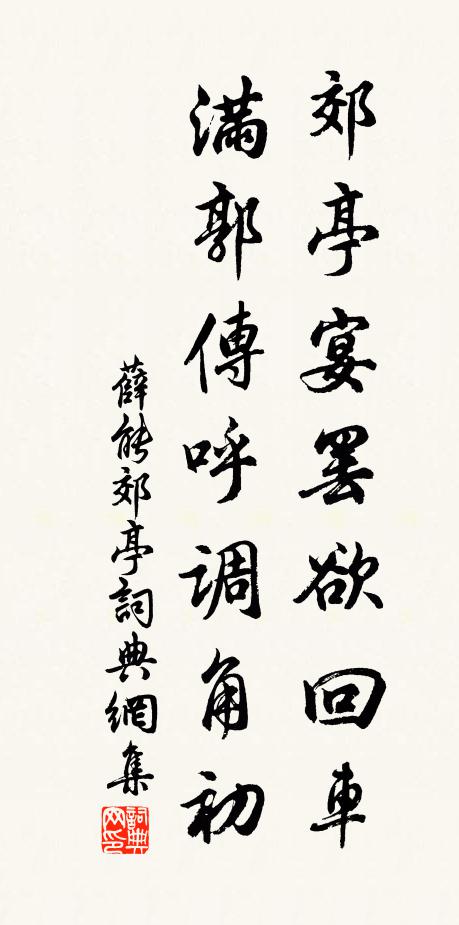 郊亭宴罢欲回車
滿郭傳呼调角初
薛能郊亭詞典網集
詞典網印